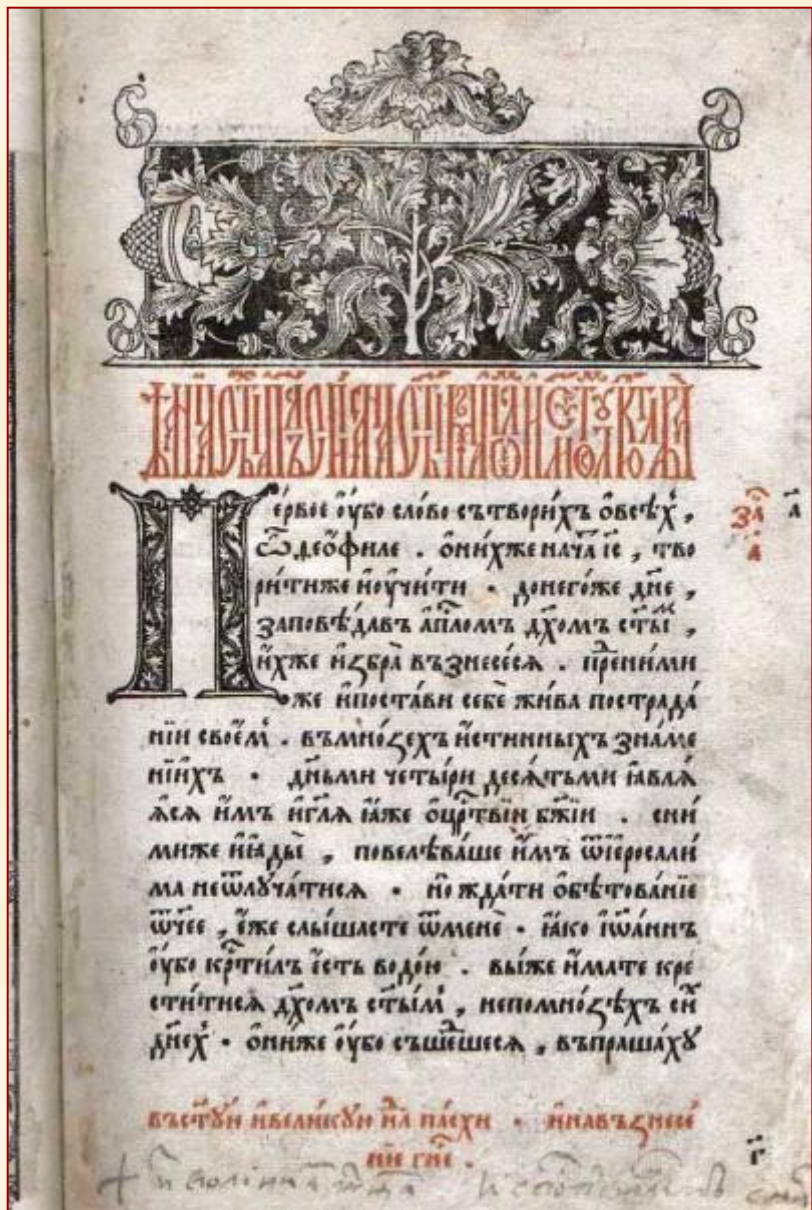 ервое ѹ҆бо сло́во сътвори́хъ ѻ҆всѣ́хъ ,
ѽ деѻ҆́филе . ѻ҆ни́хже нача́тъ і҆с , тво
ри́тиже и҆ѹ҆чи́ти . донего́же дн҃е ,
заповѣ́давъ а҆пⷭ҇ломъ дх҃омъ ст҃ыⷨ ,
и҆́хже и҆збра̀ възнесе́ся . преⷣни́ми
же и҆поста́ви себѐ жи́ва пострада́
нїи свое́мъ . въмно́ѕехъ и҆́стинныхъ зна́ме
нїихъ . дн҃ьми четы́ри десѧ́тьми ꙗ҆влѧ́
ѧ҆сѧ и҆́мъ и҆гл҃ѧ ꙗ҆́же ѻ҆црⷭ҇твїи бж҃їи . сни́
миже и҆ꙗ҆ды̀ , повелѣва́ше и҆́мъ ѿі҆еросали́
ма неѿлуча́тисѧ . но жда́ти ѻ҆бѣтова́нїе
ѿч҃ее , є҆́же слы́шасте ѿменѐ . ꙗ҆́ко і҆ѡ҆а́ннъ
ѹ҆́бо крⷭ҇ти́лъ є҆́сть водо́ю . вы́же и҆́мате кре
сти́тисѧ дх҃омъ ст҃ы́мъ , непомно́ѕѣхъ си́хъ
дн҃ехъ . ѻ҆ни́же ѹ҆́бо съше́дшесѧ , въпраша́хѹ
въст҃ѹ́ю и҆вели́кѹю нⷣлю па́схи . и҆навъзнесе́
нїе гн҃е .
г҃